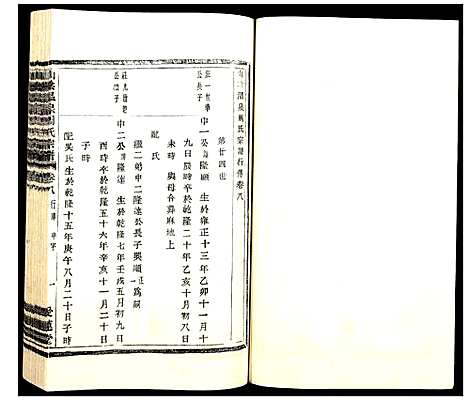 氏宗譜行傳卷八
第廿四世
公長子
中一公諱隆願 生於雍正十三年乙卯十一月十
九日歲時卒於乾隆二十年乙亥十月初六日
未時 與母合葬麻地上
配氏
繼二弟中二隆達公長子興順為嗣
公次子
中二公諱隆達 生於乾隆七年壬戌五月初九日
酉時卒於乾隆五十六年辛亥十一月二十日
子時
配吳氏生於乾隆十五年庚午八月二十日子時
氏宗譜 卷八 行傳 中字 一